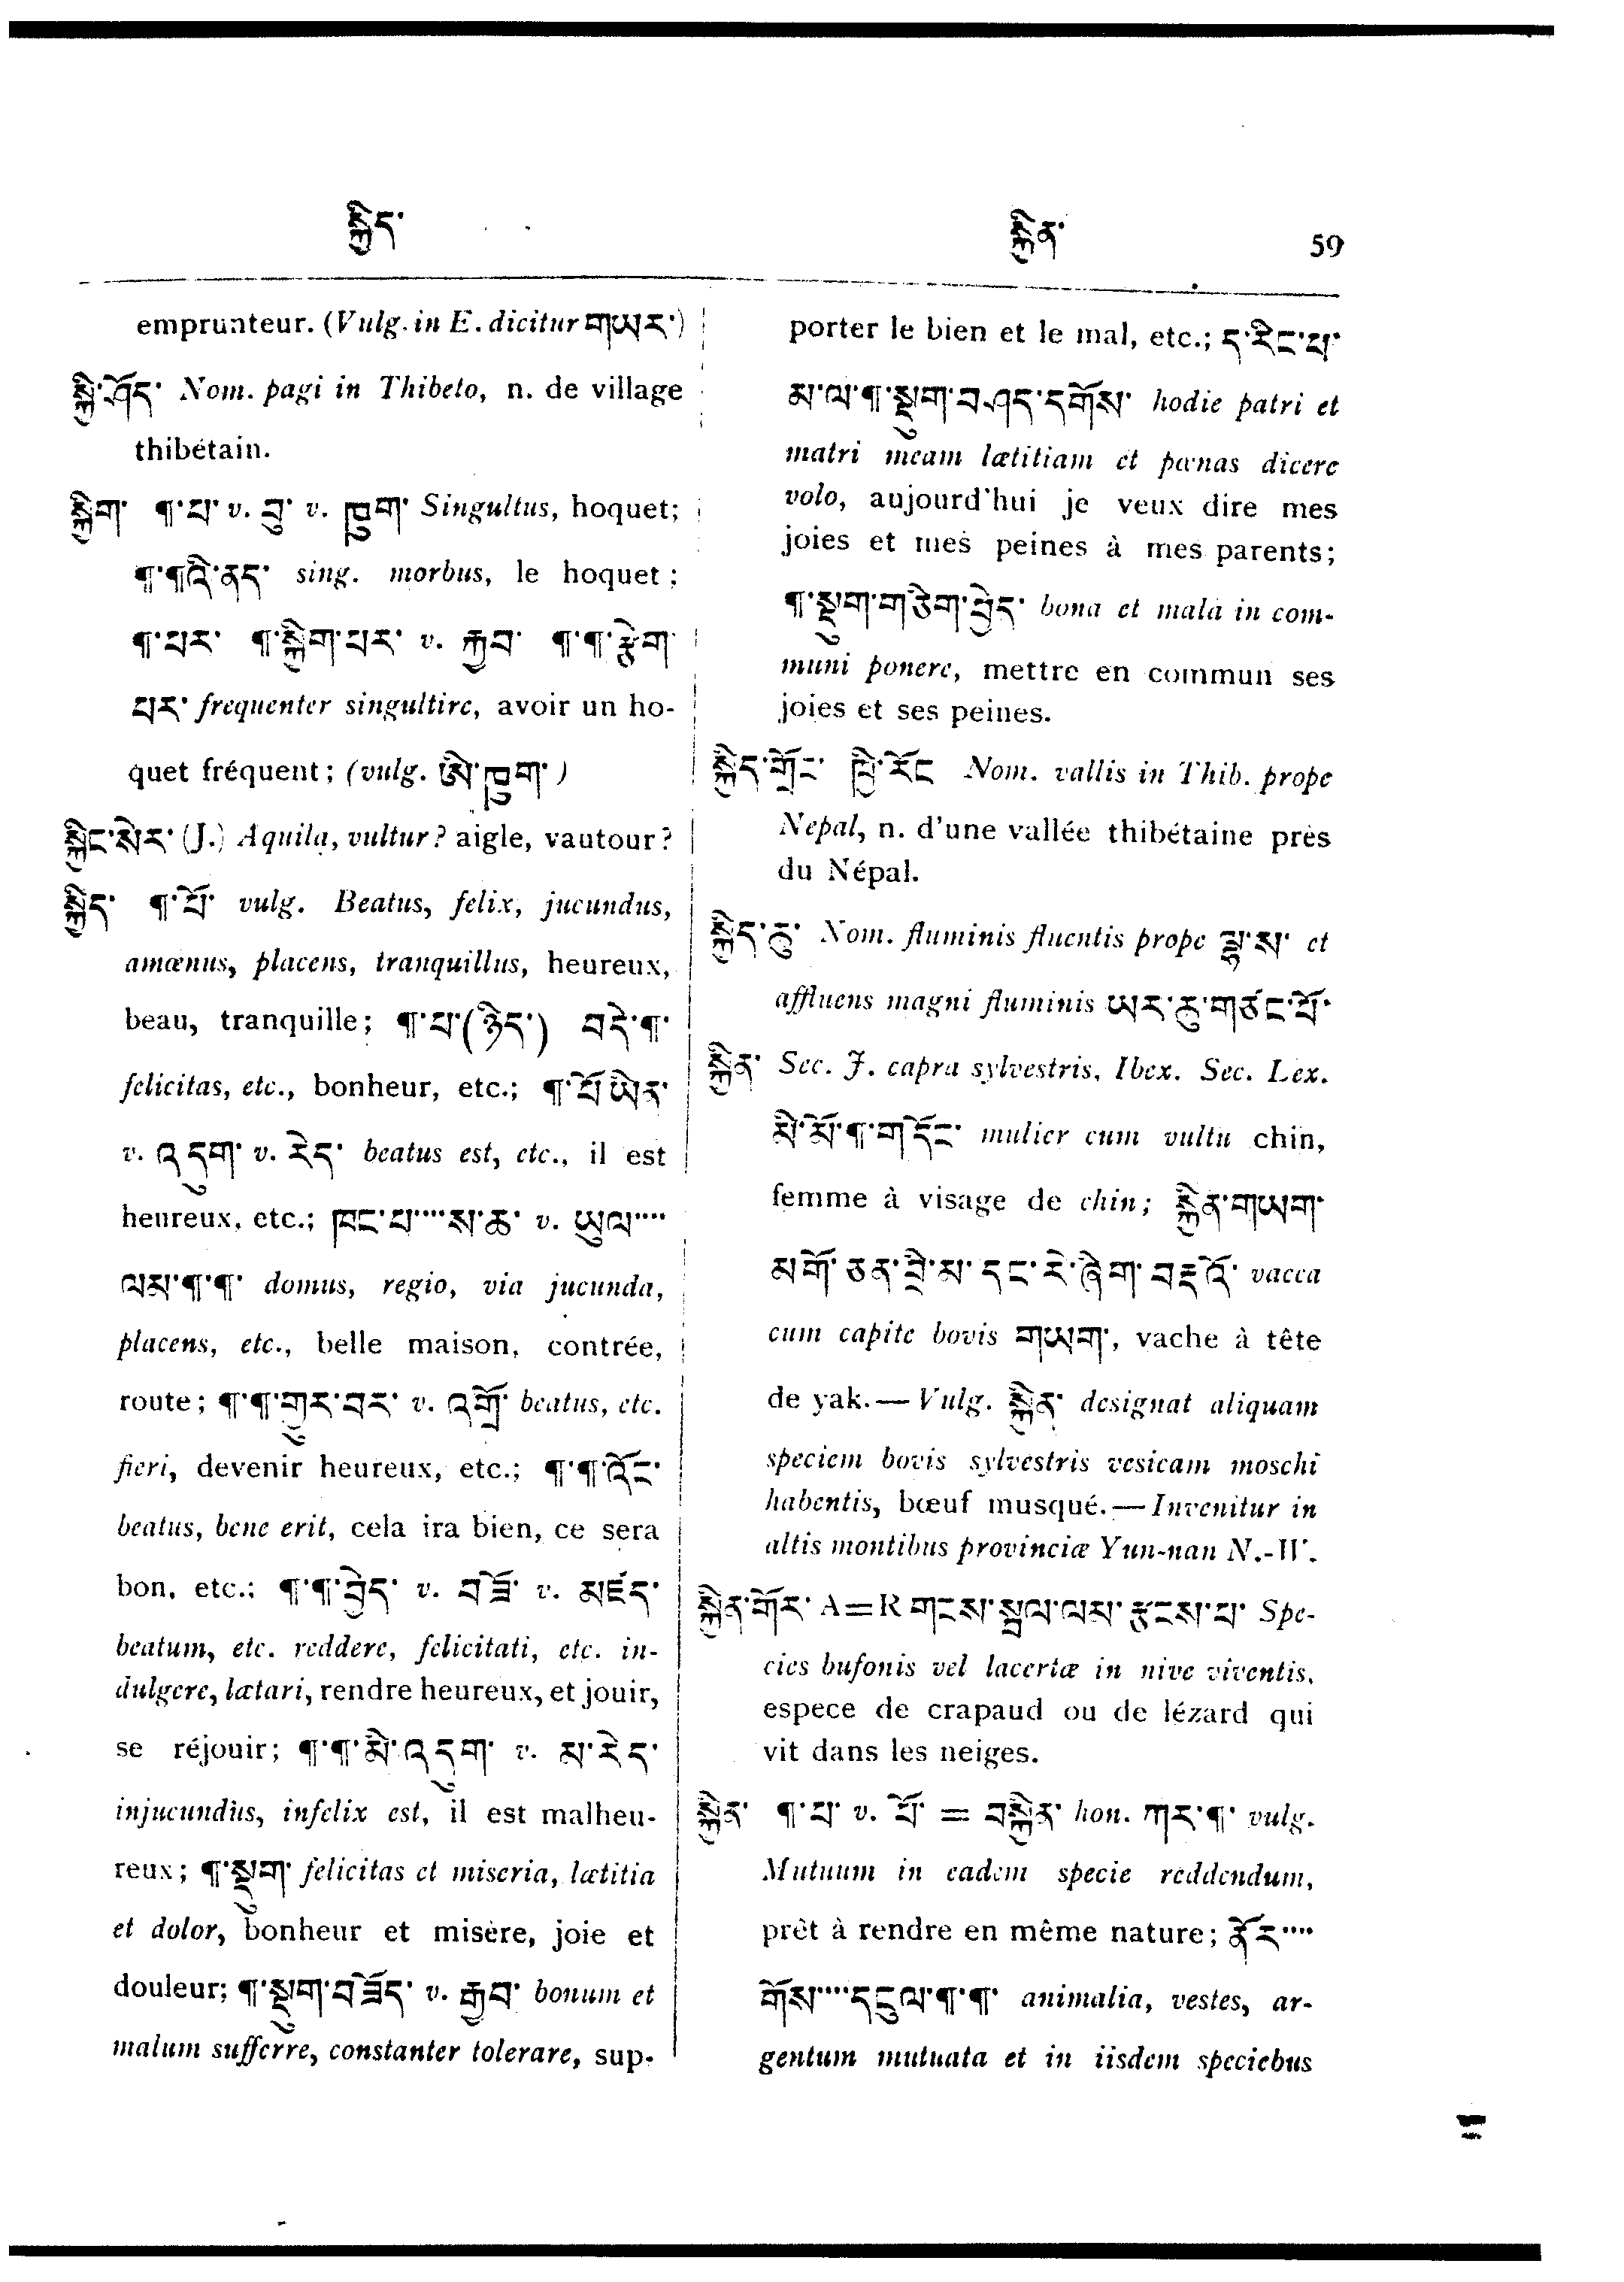 སྐྱིད་
སྐྱིན་ 59
emprunteur. (Vulg. in E. dicitur གཡར་)
སྐྱི་ཤོད་ Nom. pagi in Thibeto, n. de village
thibétain.
སྐྱིག་ ༑་པ་ v. བུ་ v. ཁྲུག་ Singultus, hoquet;
༑་༑འི་ནད་ sing. morbus, le hoquet;
༑་པར་ ༑་སྐྱིག་པར་ v. རྒྱབ་ ༑་༑་རྩེག་
པར་ frequenter singultire, avoir un ho-
quet fréquent; (vulg. ཨི་ཁྲུག་)
སྐྱིང་སེར་ (J.) Aquila, vultur? aigle, vautour?
སྐྱིད་ ༑་པོ་ vulg. Beatus, felix, jucundus,
amœnus, placens, tranquillus, heureux,
beau, tranquille; ༑་པ་(ཉིད་) བདེ་༑་
felicitas, etc., bonheur, etc.; ༑་པོ་ཡིན་
v. འདུག་ v. རེད་ beatus est, etc., il est
heureux, etc.; ཁང་པ་····ས་ཆ་ v. ཡུལ་····
ལམ་༑་༑་ domus, regio, via jucunda,
placens, etc., belle maison, contrée,
route; ༑་༑་གྱུར་བར་ v. འགྲོ་ beatus, etc.
fieri, devenir heureux, etc.; ༑་༑་འོང་
beatus, bene erit, cela ira bien, ce sera
bon, etc.; ༑་༑་བྱེད་ v. བཟོ་ v. མཛད་
beatum, etc. reddere, felicitati, etc. in-
dulgere, lætari, rendre heureux, et jouir,
se réjouir; ༑་༑་མི་འདུག་ v. མ་རེད་
injucundus, infelix est, il est malheu-
reux; ༑་སྡུག་ felicitas et miseria, lætitia
et dolor, bonheur et misère, joie et
douleur; ༑་སྡུག་བཟོད་ v. རྒྱབ་ bonum et
malum sufferre, constanter tolerare, sup-
porter le bien et le mal, etc.; ད་རིང་པ་
མ་ལ་༑་སྡུག་བཤད་དགོས་ hodie patri et
matri meam lætitiam et pœnas dicere
volo, aujourd'hui je veux dire mes
joies et mes peines à mes parents;
༑་སྡུག་གཅིག་བྱེད་ bona et mala in com-
muni ponere, mettre en commun ses
joies et ses peines.
སྐྱིད་གྲོང་ ཁྱི་རོང Nom. vallis in Thib. prope
Nepal, n. d'une vallée thibétaine près
du Népal.
སྐྱིད་ཆུ་ Nom. fluminis fluentis prope ལྷ་ས་ et
affluens magni fluminis ཡར་ཆུ་གཙང་པོ་
སྐྱིན་ Sec. J. capra sylvestris, Ibex. Sec. Lex.
མི་མོ་༑་གདོང་ mulier cum vultu chin,
femme à visage de chin; སྐྱིན་གཡག་
མགོ་ཅན་བྲི་མ་དང་རེ་ཞིག་བརྡ་འོ་ vacca
cum capite bovis གཡག་, vache à tête
de yak. — Vulg. སྐྱིན་ designat aliquam
speciem bovis sylvestris vesicam moschi
habentis, bœuf musqué. — Invenitur in
altis montibus provinciæ Yun-nan N.-W.
སྐྱིན་གོར་ A=R གངས་སྦལ་ལམ་རྩངས་པ་ Spe-
cies bufonis vel lacertæ in nive viventis,
espece de crapaud ou de lézard qui
vit dans les neiges.
སྐྱིན་ ༑་པ་ v. པོ་ = བསྐྱིན་ hon. ཀར་༑་ vulg.
Mutuum in eadem specie reddendum,
prêt à rendre en même nature; ནོར་····
གོས་····དངུལ་༑་༑་ animalia, vestes, ar-
gentum mutuata et in iisdem speciebus